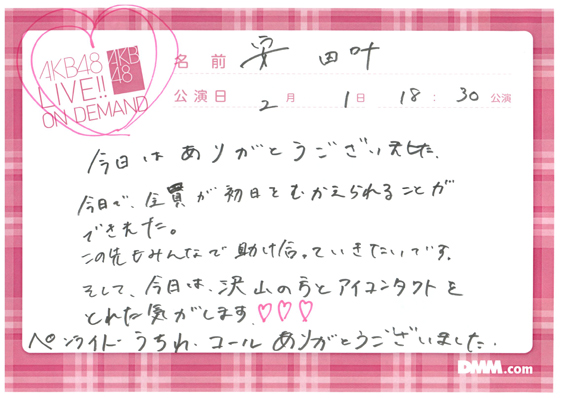 AKB48
LIVE!!
ON DEMAND
AKB
48
名前 安田叶
公演日 2月 1日 18:30公演
今日はありがとうございました.
今日で、全員が初日をむかえられることが
できました。
この先もみんなで助け合っていきたいです.
そして、今日は、沢山の方とアイコンタクトを
とれた気がします.♡♡♡
ペンライト うちわ. コール ありがとうございました.
DMM.com